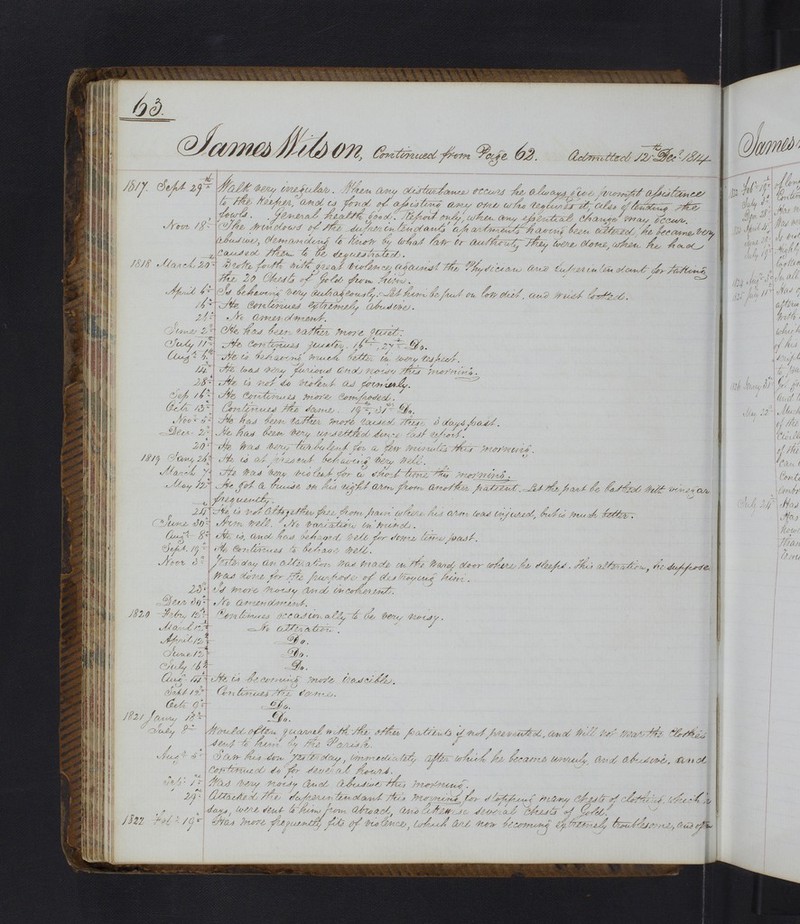 63.
James Wilson, Continued from Page 62. Admitted 12th Decr 1814
1817. Sept 29th Walk very irregular. When any disturbance occurs he always give prompt assistance
to the Keeper, and is fond of assisting any one who requires it, also of tending the
fowls. General health good. Report only, when any essential change may occur.
Novr 18th The windows of the superintendants apartments having been altered, he became very
abusive, demanding to know by what law or authority they were done, when he had
caused them to be sequestrated.
1818 March 20th Broke forth with great violence against the Physician and superintendant for taking
the 20 Chests of Gold from him.
April 6th Is behaving very outrageously. Let him be put on low diet, and wrist locked.
16th He continues extremely abusive.
No amendment.
June 2d He has been rather more quiet.
July 11th He continues quieter. 16th, 27th Do.
Augt He is behaving much better in every respect.
14th He was very furious and noisy this morning.
28th He is not so violent as formerly.
Sep 16th He continues more composed.
Octr 13th Continues the same. 19th, 31st Do.
Novr He has been rather more raised these 3 days past.
Decr 2d He has been very unsettled since last report.
20th He was very turbulent for a few minutes this morning.
1819 Jany He is at present behaving very well.
March 7th He was very violent for a short time this morning.
May 12th He got a bruise on his right arm from another patient. Let the part be bathed with vinegar
frequently.
21st He is not altogether free from pain where his arm was injured, but is much better.
June 30th Arm well. No variation in mind.
Augt 8th He is, and has behaved well for some time past.
Sept 19th He continues to behave well.
Novr 3d Yesterday an alteration was made on the ward door where he sleeps. This alteration, he suppose
was done for the purpose of destroying him.
23d Is more noisy and incoherent.
Decr 30th No amendment.
1820 Febry 12th Continues occasionally to be very noisy.
March 12th No alteration.
April 12th Do.
June 12th Do.
July 16th Do.
Aug 14th He is becoming more irascible.
Sept 12th Continues the same.
Octr 9th Do.
1821 Jany 18th Do.
July 8th Would often quarrel with the other patients if not prevented, and will not wear the clothes
sent to him by the Parish.
Augt Saw his son yesterday, immediately after which he became unruly and abusive, and
continued so for several hours.
Was very noisy and abusive this morning.
29th Attacked the superintendant this morning for stopping many chests of clothing which he
says, were sent to him from abroad, and likewise several chests of Gold.
1822 Feby 19th Has more frequently fits of violence, which are now becoming extremely troublesome, and often
James